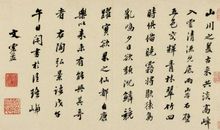 山川之美古來共談高峰
入雲清流見底兩岸石壁
五色交輝青林翠竹四
時俱備曉霧將歇猿鳥
亂鳴夕日欲頹沉鱗競
躍實欲界之仙都自康
樂以來未有能與其奇
者右陶弘景語
書於
文震孟